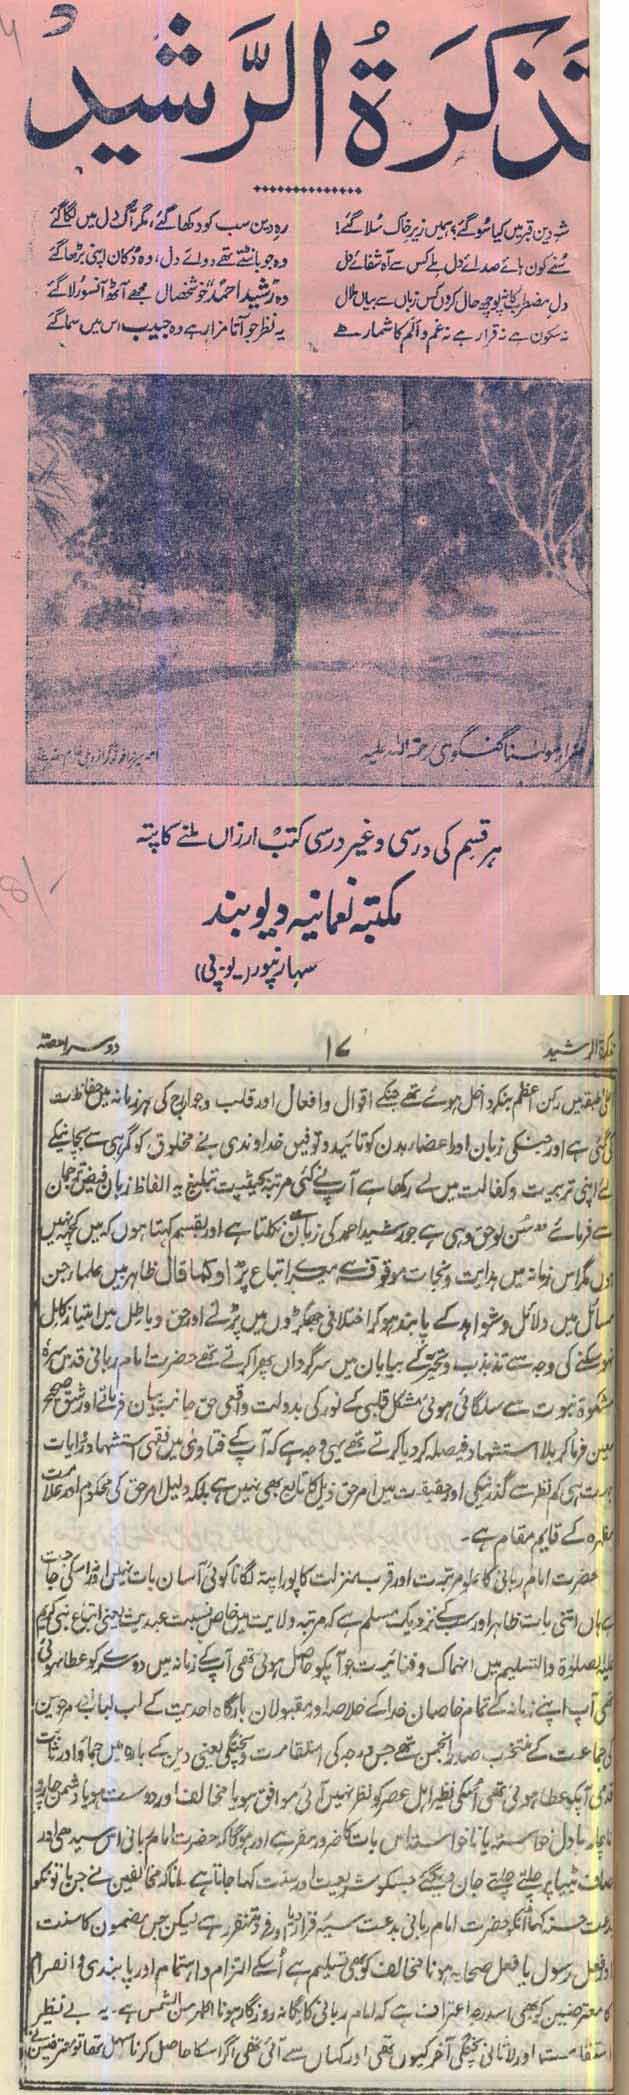 تذکرۃ الرشید
شہِ دین قبر میں کیا سو گئے؟ ہمیں زیرِ خاک سُلا گئے!
رہِ دین سب کو دکھا گئے، مگر آگ دل میں لگا گئے
سُنے کون ہائے صدائے دل ملے کس سے آہ شفائے دل
وہ جو بانٹتے تھے دوائے دل، وہ دُکان اپنی بڑھا گئے
دلِ مضطر کا نہ پوچھ حال کروں کس زباں سے بیاں ملال
وہ رشید احمدؒ خوشخصال مجھے آٹھ آنسو رُلا گئے
نہ سکون ہے نہ قرار ہے نہ غم و الم کا شمار ہے
یہ نظر جو آتا مزار ہے وہ حبیب اس میں سما گئے
مزار مولٰنا گنگوہی رحمۃ اللہ علیہ
ہر قسم کی درسی و غیر درسی کتب ارزاں ملنے کا پتہ
مکتبہ نعمانیہ دیوبند
سہارنپور (یو۔پی)
تذکرۃ الرشید
۱۷
دوسرا حصّہ
طبقہ میں رکن اعظم بنکر داخل ہوئے تھے جنکے اقوال و افعال اور قلب و جوارح کی ہر زمانہ میں حفاظت
کی گئی ہے اور جنکی زبان اور اعضاء بدن کو تائید و توفیق خداوندی نے مخلوق کو گمرہی سے بچانیکے
لئے اپنی تربیت و کفالت میں لے رکھا ہے آپ نے کئی مرتبہ بحیثیت تبلیغ یہ الفاظ زبان فیض ترجمان
سے فرمائے سُن لو حق وہی ہے جو رشید احمد کی زبان سے نکلتا ہے اور بقسم کہتا ہوں کہ میں کچھ نہیں
ہوں مگر اس زمانہ میں ہدایت و نجات موقوف ہے میرے اتباع پر او کما قال ظاہر میں علماء جن
مسائل میں دلائل و شواہد کے پابند ہو کر اختلافی جھگڑوں میں پڑتے اور حق و باطل میں امتیاز کامل
نہو سکنے کی وجہ سے تذبذب و تحیر کے بیابان میں سرگرداں پھرا کرتے تھے حضرت امام ربانی قدس سرہ
مشکوٰۃ نبوت سے سلگائی ہوئی مشعل قلبی کے نور کی بدولت واقعی حق جانب بیان فرماتے اور شق صحیح
معین فرما کر بلا استشہاد فیصلہ کر دیا کرتے تھے یہی وجہ ہے کہ آپ کے فتاوی میں نقلی استشہاد روایات
بہت ہی کم نظر سے گذریگی اور حقیقت میں امر حق دلیل کا تابع بھی نہیں ہے بلکہ دلیل امر حق کی محکوم اور علامت
مظہرہ کے قایم مقام ہے۔
حضرت امام ربانی کا علوم تبت اور قرب منزلت کا پورا پتہ لگانا کوئی آسان بات نہیں اور نہ اسکی حاجت
ہے ہاں اتنی بات ظاہر اور سب کے نزدیک مسلم ہے کہ مرتبہ ولایت میں خاص نسبت عبدیت یعنی اتباع نبی کریم
علیہ الصلوٰۃ والتسلیم میں انہماک و فنائیت جو آپکو حاصل ہوئی تھی آپ کے زمانہ میں دوسرے کو عطا نہوئی
تھی آپ اپنے زمانہ کے تمام خاصان خدا کے خلاصہ اور مقبولان بارگاہ احدیت کے لب لباب
کی جماعت کے منتخب صدر انجمن تھے جس درجہ کی استقامت و پختگی یعنی دین کے بارہ میں جماؤ اور ثابت
قدمی آپکو عطا ہوئی تھی اُسکی نظیر اہل عصر کو نظر نہیں آئی موافق ہو یا مخالف اور دوست ہو یا دشمن چار و
ناچار بادل خواستہ یا ناخواستہ اس بات کا ضرور مقر ہے اور ہوگا کہ حضرت امام ربانی اس سیدھی اور
صاف بٹیا پر چلتے چلتے جان دیگئے جسکو شریعت اور سنت کہا جاتا ہے مخالفین نے جن باتونکو
بدعت حسنہ کہا انکو حضرت امام ربانی بدعت سیئہ قرار دیا اور متنفر رہے لیکن جس مضمون کا سنت
اور فعل رسول یا فعل صحابہ ہونا مخالف کو بھی تسلیم ہے اُسکے التزام و اہتمام اور پابندی و انصرام
کا معترضین کو بھی اسدرجہ اعتراف ہے کہ امام ربانی کا یگانہ روزگار ہونا اظہر من الشمس ہے۔ یہ بے نظیر
استقامت اور لاثانی پختگی آخر کیوں تھی اور کہاں سے آئی تھی اگر اسکا حاصل کرنا سہل تھا تو معترضین نے